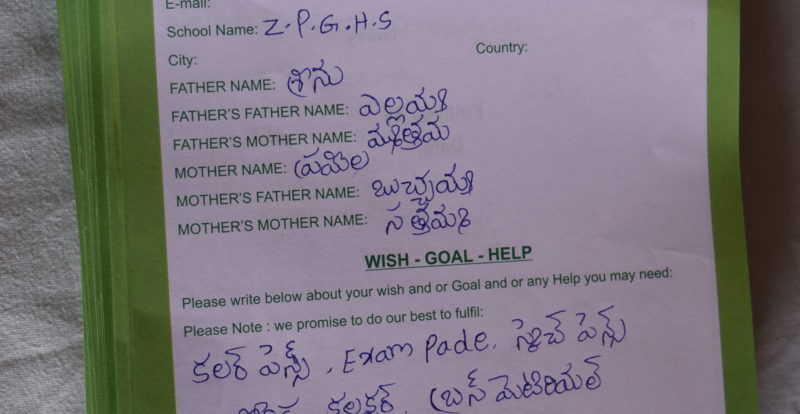 E-mail:
School Name: Z.P.G.H.S
City: Country:
FATHER NAME: శ్రీను
FATHER'S FATHER NAME: ఎల్లయ్య
FATHER'S MOTHER NAME:
MOTHER NAME:
MOTHER'S FATHER NAME: బుచ్చయ్య
MOTHER'S MOTHER NAME: సత్తెమ్మ
WISH - GOAL - HELP
Please write below about your wish and or Goal and or any Help you may need:
Please Note : we promise to do our best to fulfil:
కలర్ పెన్స్, Exam Pade, స్కెచ్ పెన్స్
మెటిరియల్